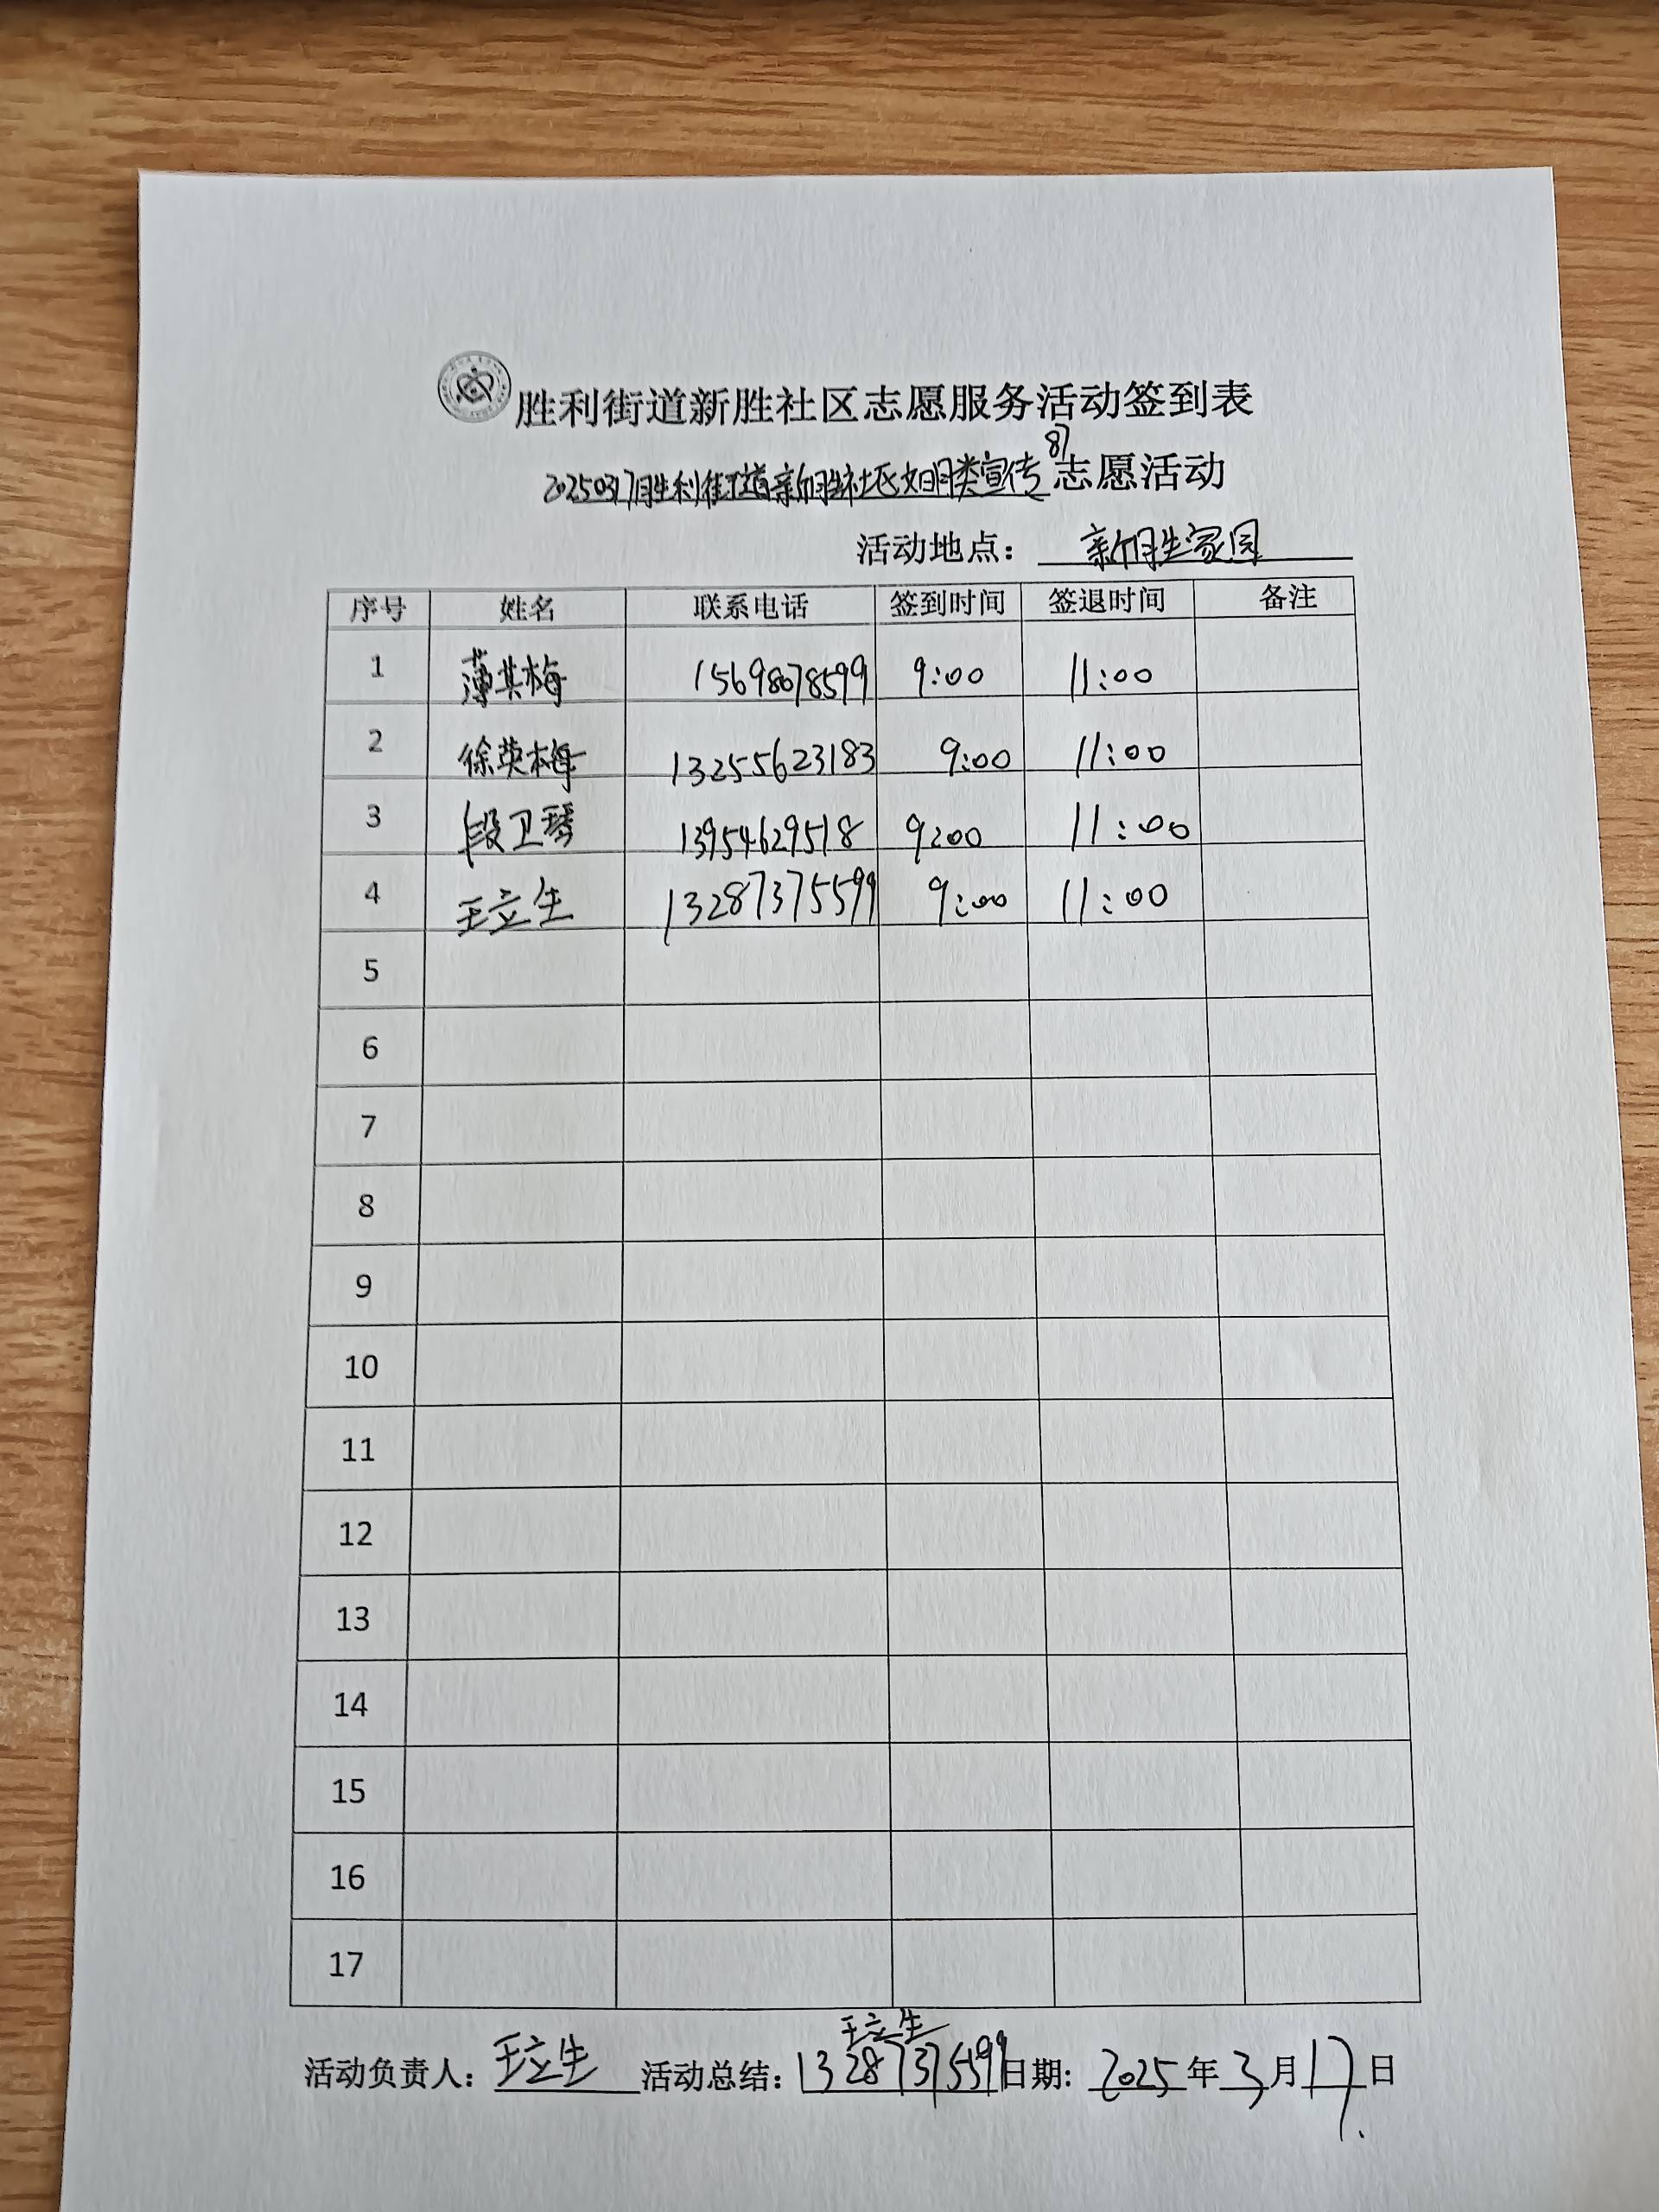 胜利街道新胜社区志愿服务活动签到表
87
20250317胜利街道新胜社区文明类宣传志愿活动
活动地点： 新胜家园
序号 姓名 联系电话 签到时间 签退时间 备注
1 薄其梅 15698078599 9:00 11:00
2 徐英梅 13255623183 9:00 11:00
3 段卫琴 13954629518 9:00 11:00
4 王立生 13287375599 9:00 11:00
5
6
7
8
9
10
11
12
13
14
15
16
17
王立生
活动负责人：王立生 活动总结：13287375599 日期：2025年3月17日